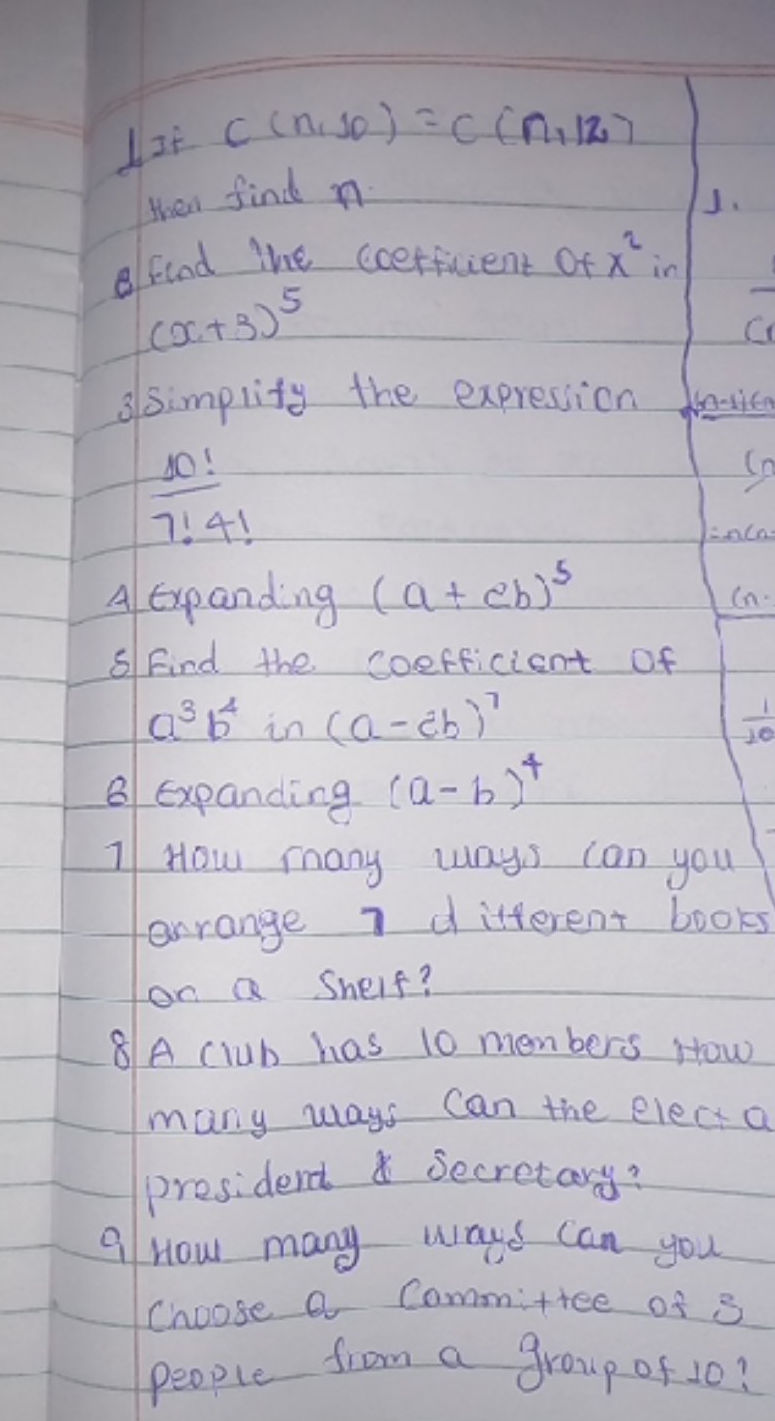 1 If C(n,10) = C(n,12)
then find n.
Find the coefficient Of x² in
(x+3)⁵
3 Simplify the expression
10!
7! 4!
4 Expanding (a + 2b)⁵
5 Find the coefficient Of
a³b⁴ in (a-2b)⁷
6 Expanding (a-b)⁴
7 How many ways can you
arrange 7 different books
on a Shelf?
8 A club has 10 members How
many ways Can the elect a
president & Secretary?
9 How many ways can you
Choose a Committee of 3
people from a group of 10?
1.
1
10